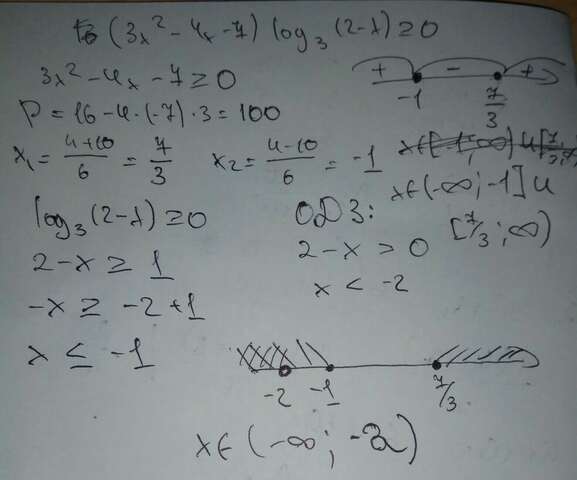 (3x² - 4x - 7) log₃(2-x) ≥ 0
3x² - 4x - 7 ≥ 0
+ - +
-1 7/3
D = 16 - 4·(-7)·3 = 100
x₁ = (4+10)/6 = 7/3 x₂ = (4-10)/6 = -1
x∈(-∞; -1] ∪ [7/3; ∞)
log₃(2-x) ≥ 0
2-x ≥ 1
-x ≥ -2+1
x ≤ -1
ОДЗ:
2-x > 0
x < -2
-2 -1 7/3
x∈(-∞; -2)